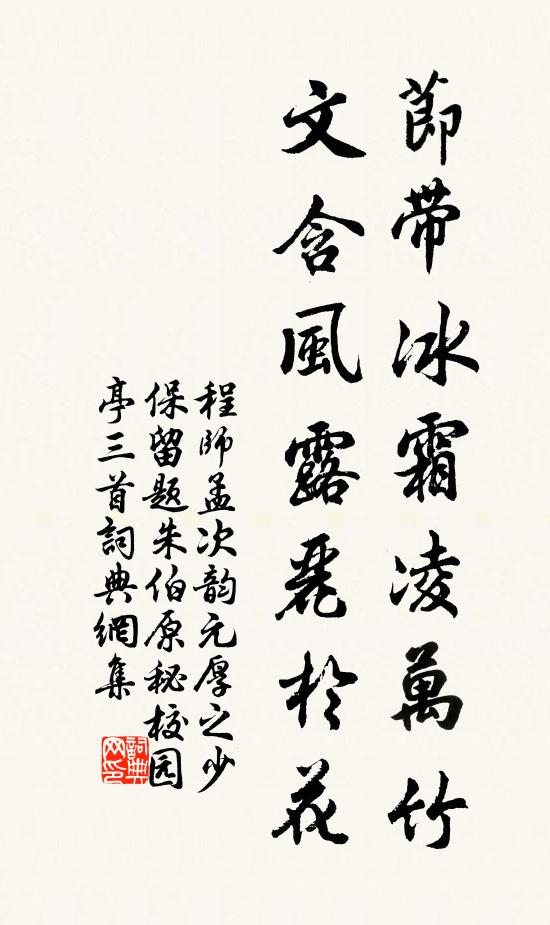 節帶冰霜凌萬竹
文含風露麗於花
程師孟次韵元厚之少
保留題朱伯原秘校园
亭三首詞典網集
詞典网印